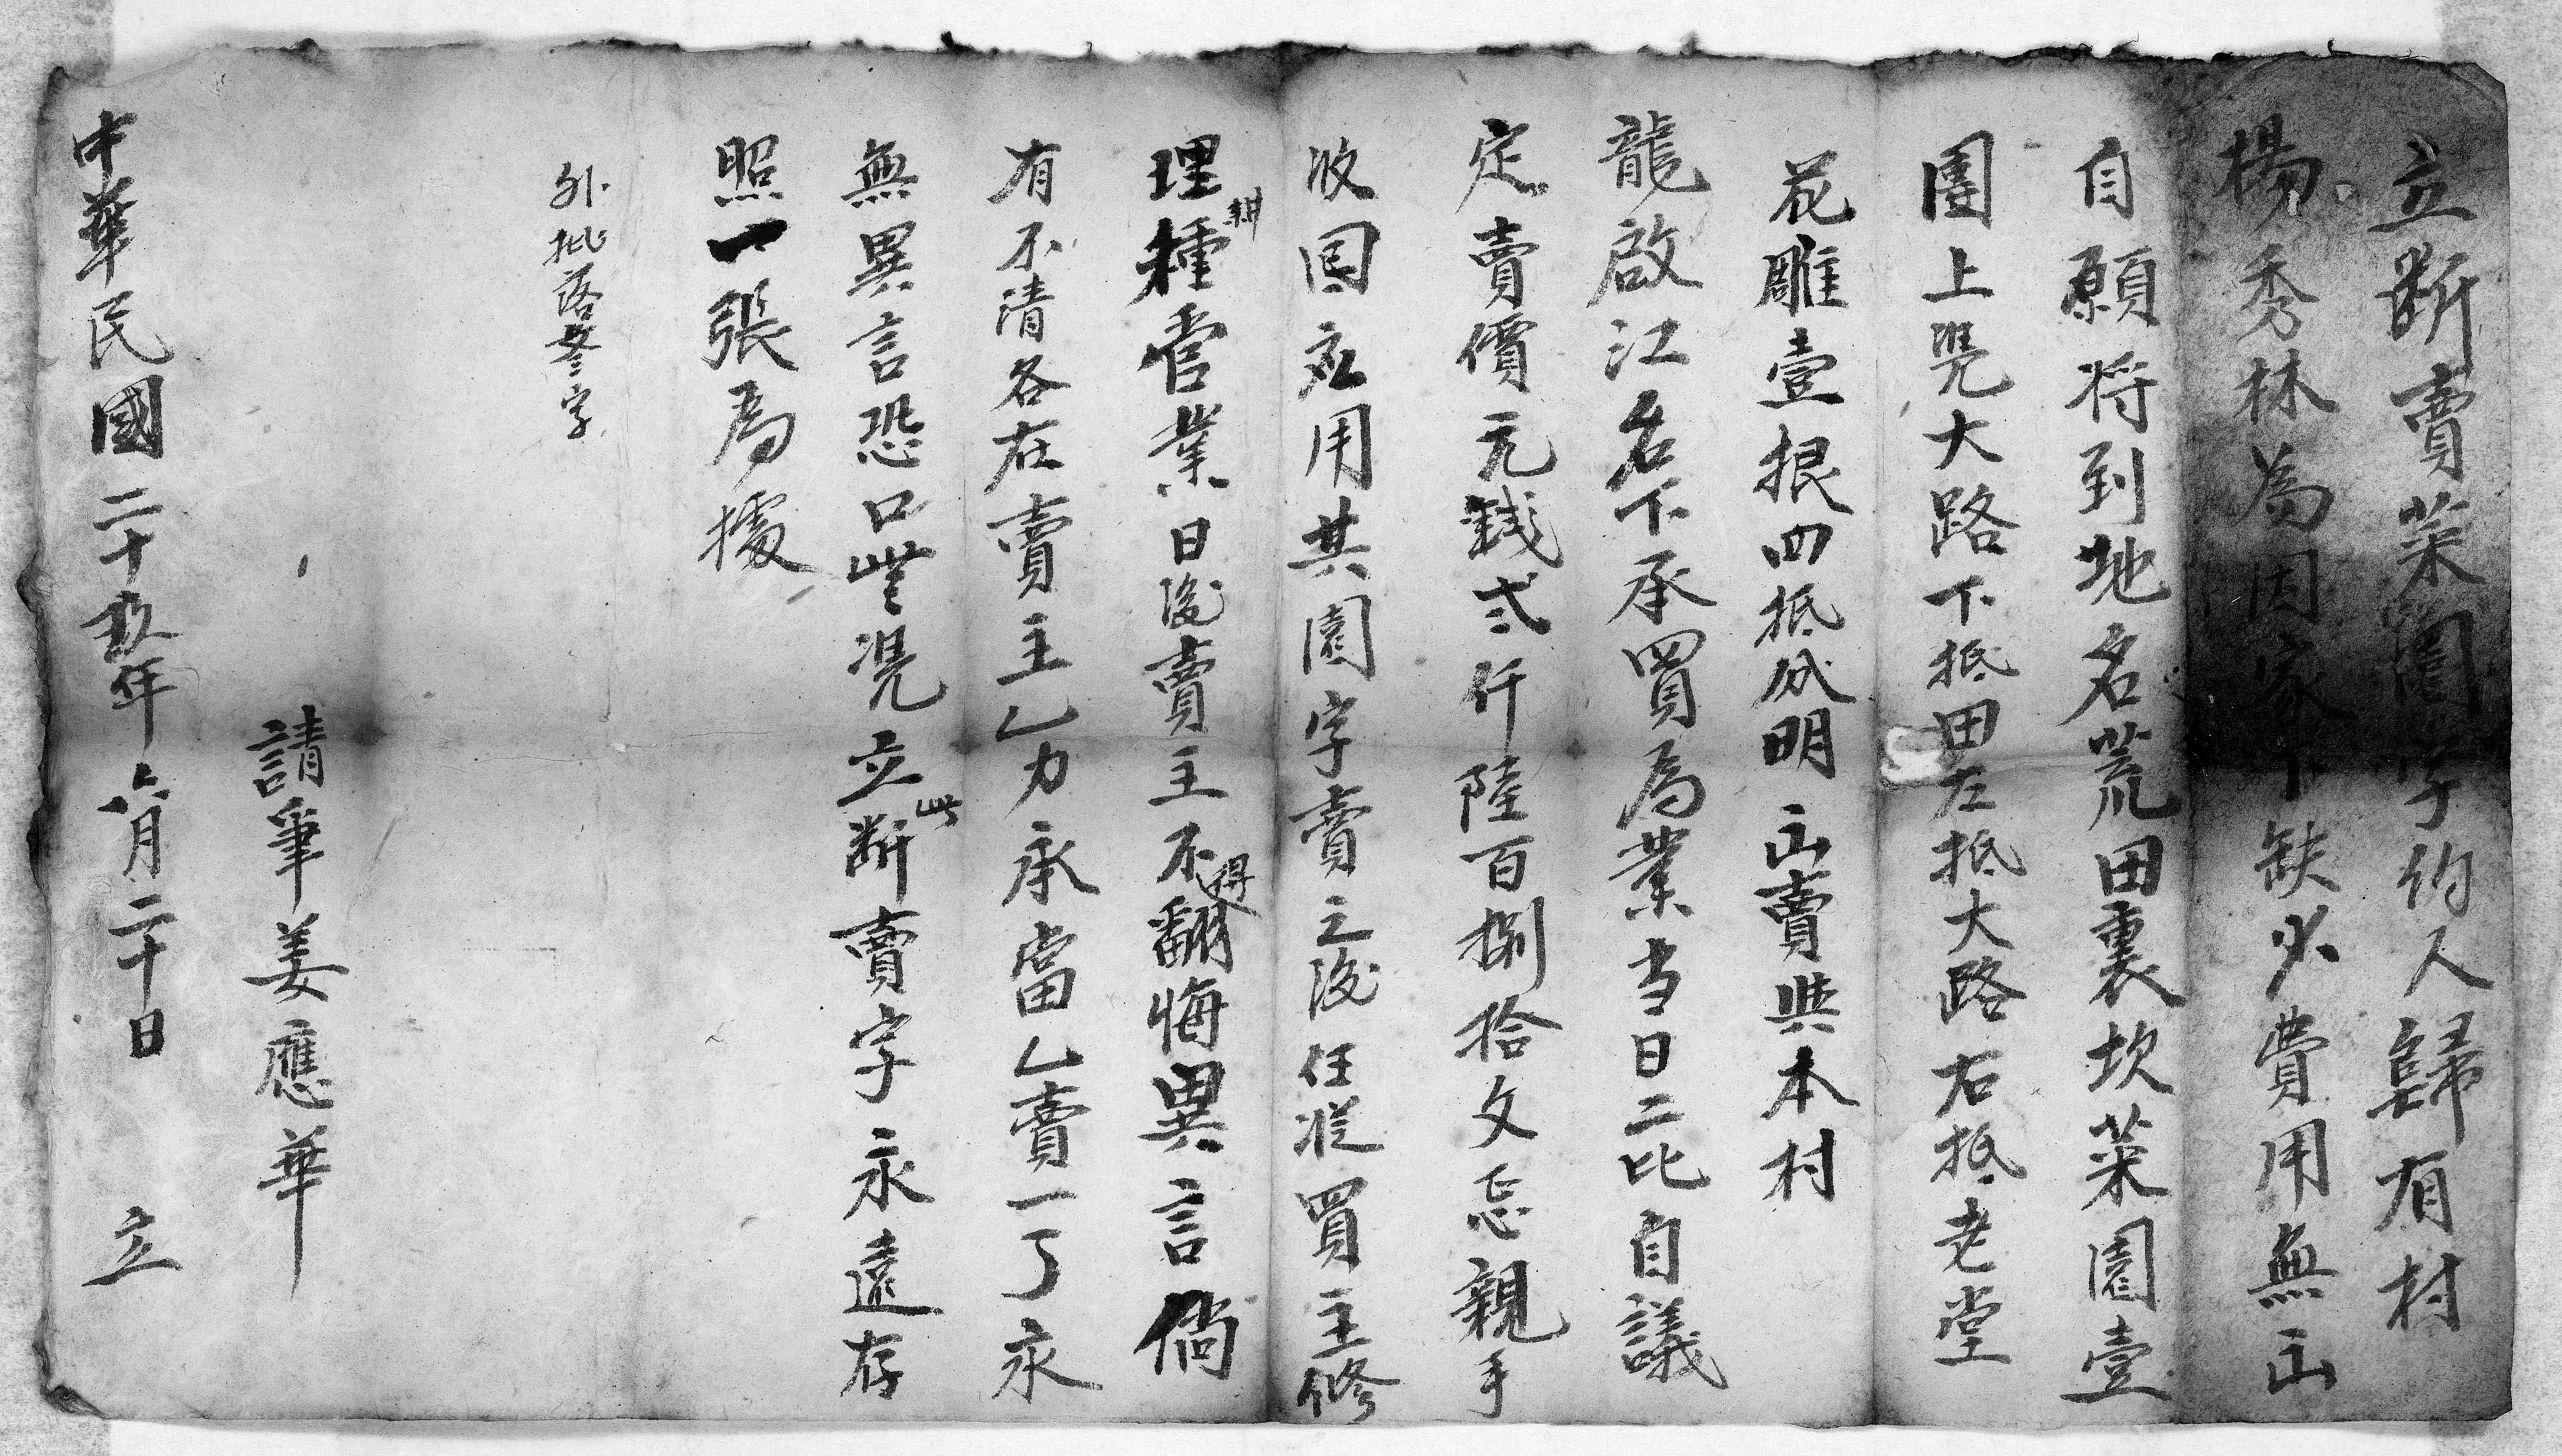 立斷賣菜園字約人歸有村
楊秀林為因家下缺少費用無出
自願将到地名荒田裏坎菜園壹
團上凴大路下抵田左抵大路右抵老堂
花雕壹根四抵分明出賣與本村
龍啟江名下承買為業当日二比自議
定賣價元錢弍仟陸百捌拾文忘親手
收囙應用其園字賣之後任從買主修
理耕種管業日後賣主不得翻悔異言倘
有不清各在賣主乚力承當乚賣一了永
無異言恐口無凴立此斷賣字永遠存
照一張為據
外批落叄字
請筆姜應華
中華民國二十五年六月二十日 立